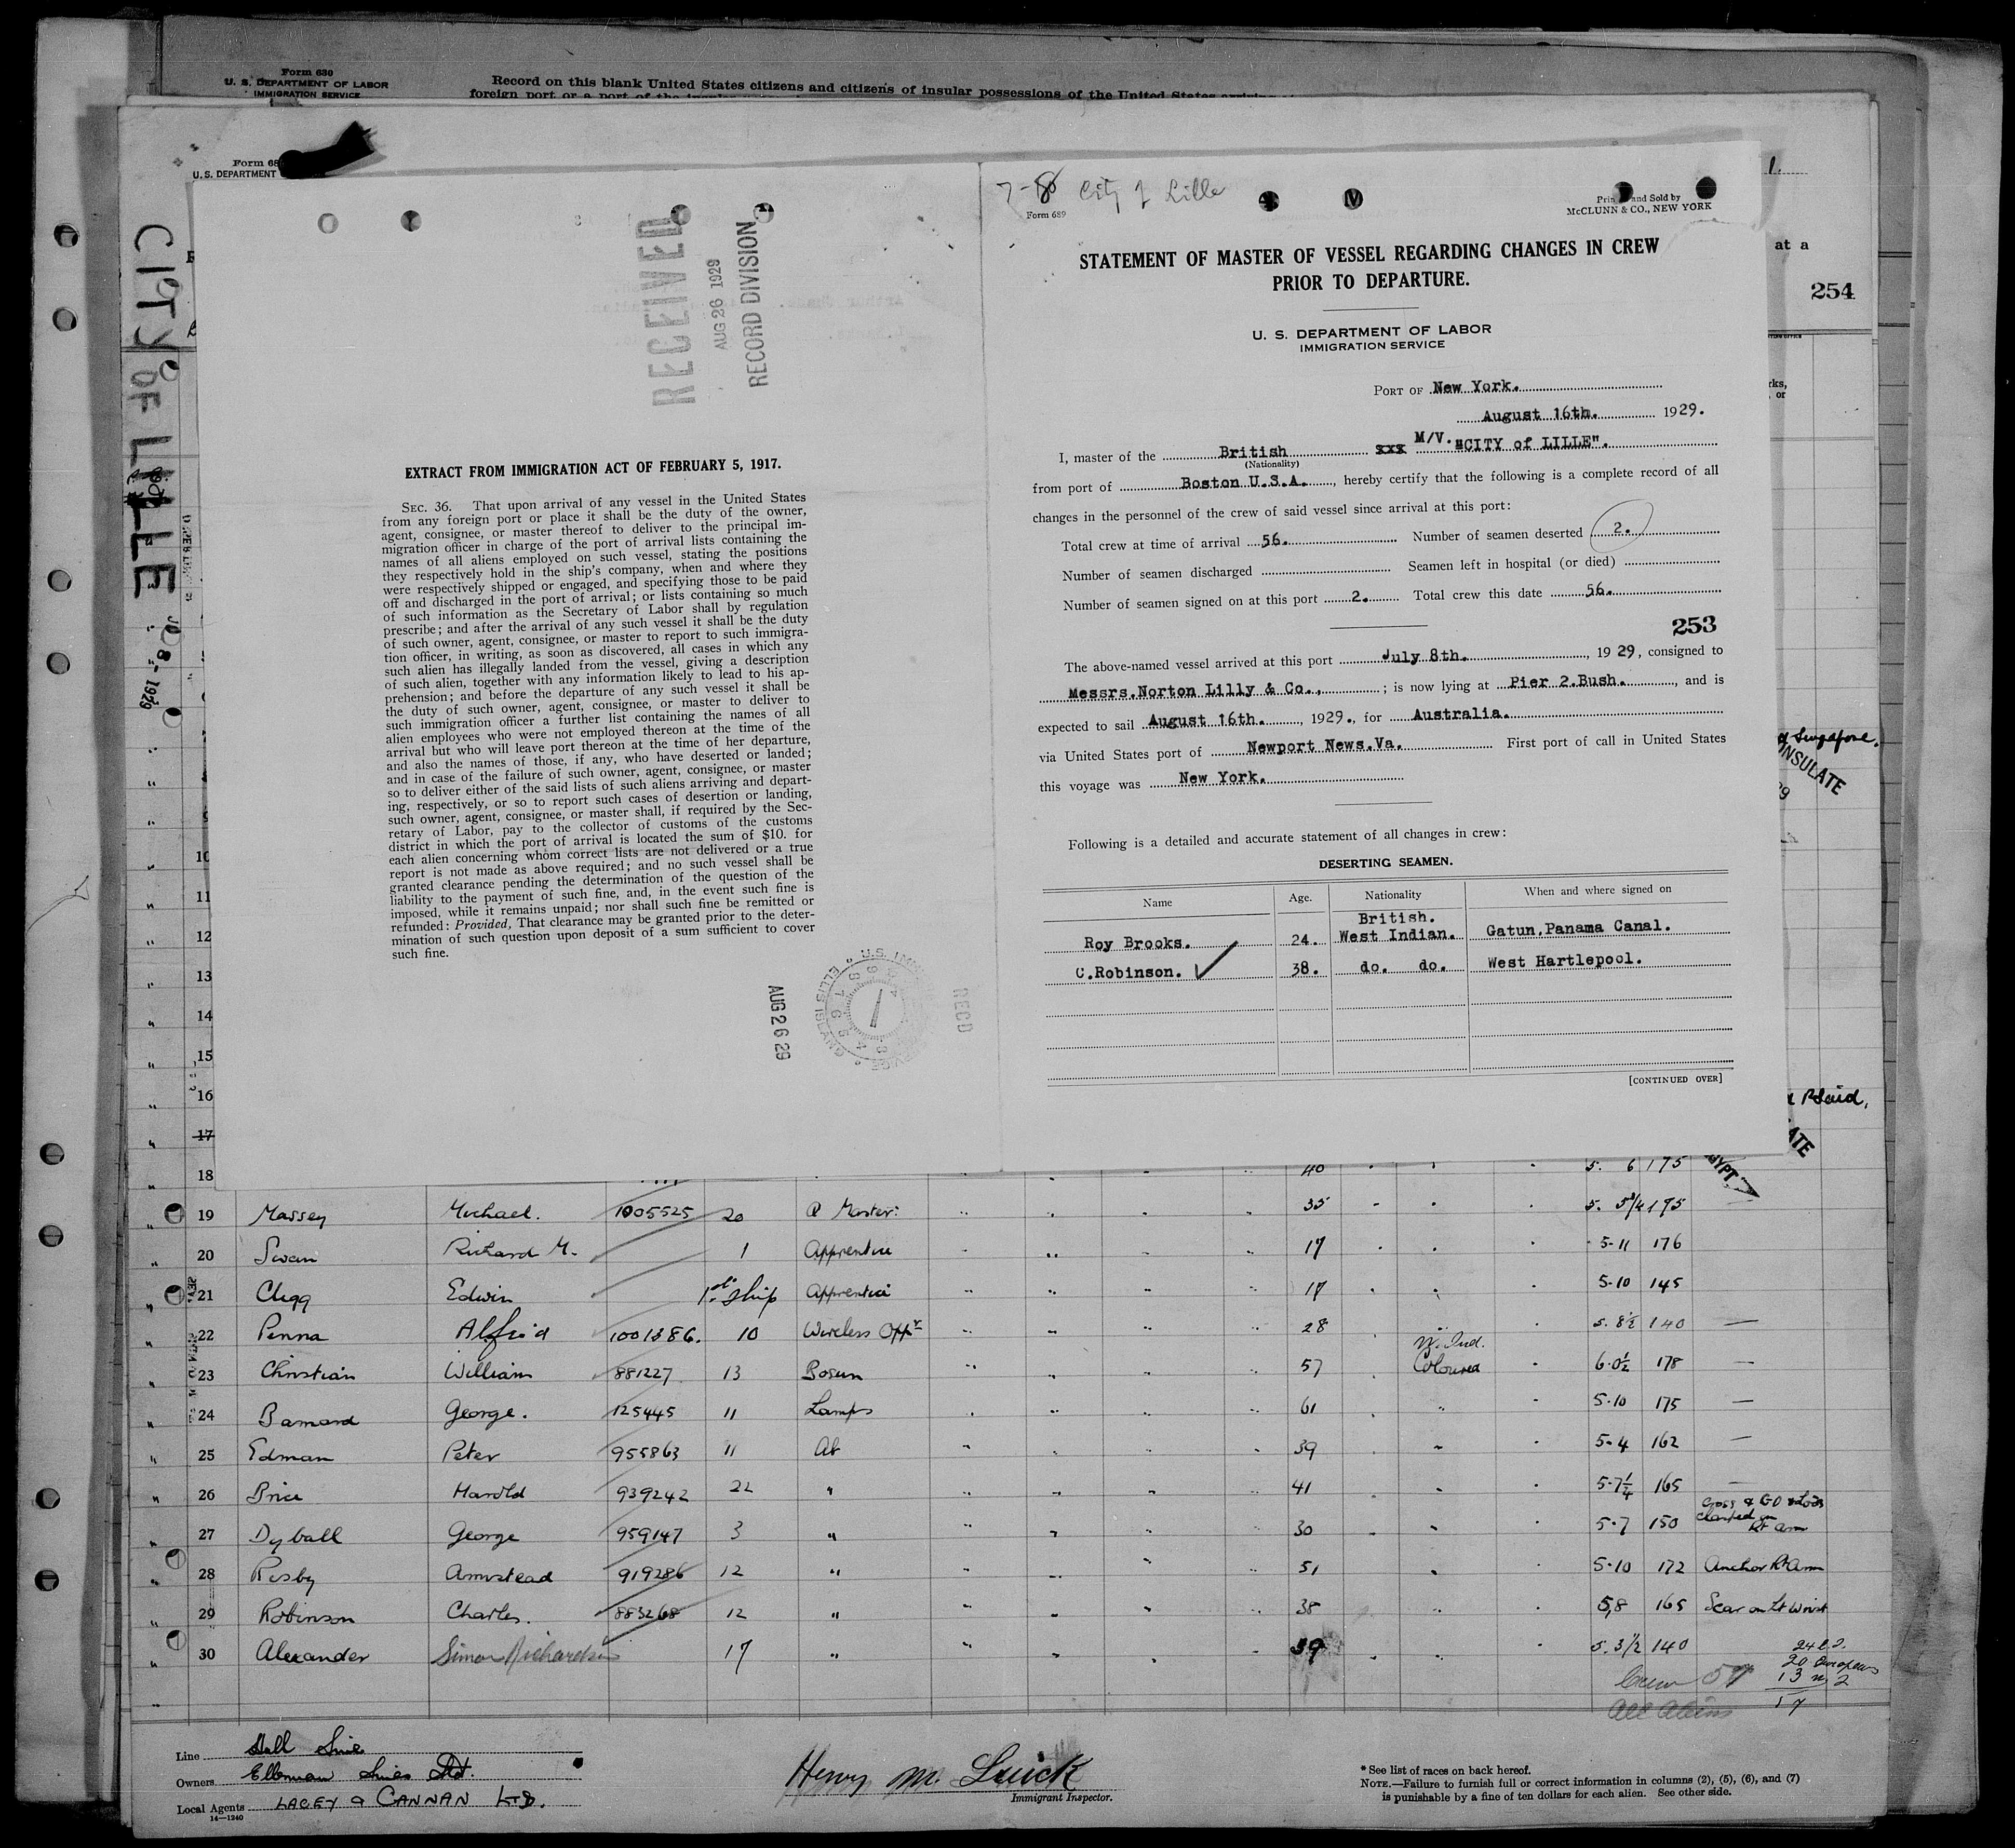 Form 630
U. S. DEPARTMENT OF LABOR
IMMIGRATION SERVICE
Record on this blank United States citizens and citizens of insular possessions of the United States arriving
foreign port or a port of the insular
Form 68
U. S. DEPARTMENT
1.
at a
254
rks,
or
CITY OF LILLE
8- 1929
RECEIVED
AUG 26 1929
RECORD DIVISION
EXTRACT FROM IMMIGRATION ACT OF FEBRUARY 5, 1917.
SEC. 36. That upon arrival of any vessel in the United States
from any foreign port or place it shall be the duty of the owner,
agent, consignee, or master thereof to deliver to the principal im-
migration officer in charge of the port of arrival lists containing the
names of all aliens employed on such vessel, stating the positions
they respectively hold in the ship's company, when and where they
were respectively shipped or engaged, and specifying those to be paid
off and discharged in the port of arrival; or lists containing so much
of such information as the Secretary of Labor shall by regulation
prescribe; and after the arrival of any such vessel it shall be the duty
of such owner, agent, consignee, or master to report to such immigra-
tion officer, in writing, as soon as discovered, all cases in which any
such alien has illegally landed from the vessel, giving a description
of such alien, together with any information likely to lead to his ap-
prehension; and before the departure of any such vessel it shall be
the duty of such owner, agent, consignee, or master to deliver to
such immigration officer a further list containing the names of all
alien employees who were not employed thereon at the time of the
arrival but who will leave port thereon at the time of her departure,
and also the names of those, if any, who have deserted or landed;
and in case of the failure of such owner, agent, consignee, or master
so to deliver either of the said lists of such aliens arriving and depart-
ing, respectively, or so to report such cases of desertion or landing,
such owner, agent, consignee, or master shall, if required by the Sec-
retary of Labor, pay to the collector of customs of the customs
district in which the port of arrival is located the sum of $10. for
each alien concerning whom correct lists are not delivered or a true
report is not made as above required; and no such vessel shall be
granted clearance pending the determination of the question of the
liability to the payment of such fine, and, in the event such fine is
imposed, while it remains unpaid; nor shall such fine be remitted or
refunded: Provided, That clearance may be granted prior to the deter-
mination of such question upon deposit of a sum sufficient to cover
such fine.
AUG 26 29
RECD
7-8 City of Lille
Form 689
and Sold by
McCLUNN & CO., NEW YORK
STATEMENT OF MASTER OF VESSEL REGARDING CHANGES IN CREW
PRIOR TO DEPARTURE.
U. S. DEPARTMENT OF LABOR
IMMIGRATION SERVICE
PORT OF New York.
August 16th. 1929.
I, master of the British xxx M/V. "CITY of LILLE".
(Nationality)
from port of Boston U.S.A., hereby certify that the following is a complete record of all
changes in the personnel of the crew of said vessel since arrival at this port:
Total crew at time of arrival 56. Number of seamen deserted 2.
Number of seamen discharged Seamen left in hospital (or died)
Number of seamen signed on at this port 2. Total crew this date 56.
253
The above-named vessel arrived at this port July 8th., 1929, consigned to
Messrs.Norton Lilly & Co., ; is now lying at Pier 2.Bush., and is
expected to sail August 16th., 1929., for Australia.
via United States port of Newport News.Va. First port of call in United States
this voyage was New York.
Following is a detailed and accurate statement of all changes in crew:
DESERTING SEAMEN.
Name Age. Nationality When and where signed on
Roy Brooks. 24. British. West Indian. Gatun,Panama Canal.
C.Robinson. 38. do. do. West Hartlepool.
[CONTINUED OVER]
Singapore.
10
11
12
13
14
15
16
17
18 40 5. 6 175
19 Massey Michael. 1005525 20 Q Master 35 5. 5¾ 195
20 Swan Richard M. 1 Apprentice 17 5-11 176
21 Clegg Edwin 1st Ship Apprentice 17 5-10 145
22 Penna Alfred 1001386. 10 Wireless Oppr 28 5. 8½ 140 —
23 Christian William 881227 13 Bosun 57 W. Ind. Coloured 6.0½ 178 —
24 Barnard George. 125445 11 Lamps 61 " 5-10 175 —
25 Edman Peter 955863 11 Ab 39 " 5-4 162 —
26 Price Harold 939242 22 " 41 5-7¼ 165 —
27 Dyball George 959147 3 " 30 " 5-7 150 clasped on Rt arm
28 Risby Armstead 919286 12 " 51 5-10 172 Anchor Rt Arm
29 Robinson Charles. 883268 12 " 38 5,8 165 Scar on Lt Wrist
30 Alexander Simon Richardson 17 " 39 5. 3½ 140
20 Europeans
Crew 57
All Aliens
Line Hall Line
Owners Ellerman Lines Ltd.
Local Agents LACEY & CANNAN LTD.
14—1240
Henry M. Luick
Immigrant Inspector.
* See list of races on back hereof.
NOTE.—Failure to furnish full or correct information in columns (2), (5), (6), and (7)
is punishable by a fine of ten dollars for each alien. See other side.